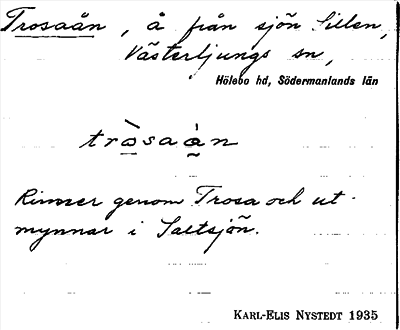 Trosaån, å från sjön Sillen,
Västerljungs sn,
Hölebo hd, Södermanlands län
tròsaàn
Rinner genom Trosa och ut-
mynnar i Saltsjön.
KARL-ELIS NYSTEDT 1935